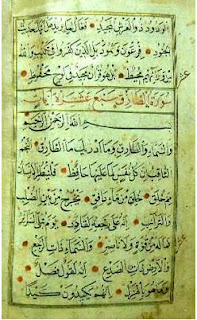 الودود ذو العرش المجيد فعال لما يريد هل اتيك حديث
الجنود فرعون وثمود بل الذين كفروا في تكذيب والله
من ورائهم محيط بل هو قرآن مجيد في لوح محفوظ
سورة الطارق سبع عشرة آيات
بسم الله الرحمن الرحيم
والسماء والطارق وما ادريك ما الطارق النجم
الثاقب ان كل نفس لما عليها حافظ فلينظر الانسان
مم خلق خلق من ماء دافق يخرج من بين الصلب
والترائب انه على رجعه لقادر يوم تبلى السرائر
فما له من قوة ولا ناصر والسماء ذات الرجع
والارض ذات الصدع انه لقول فصل
وما هو بالهزل انهم يكيدون كيدا